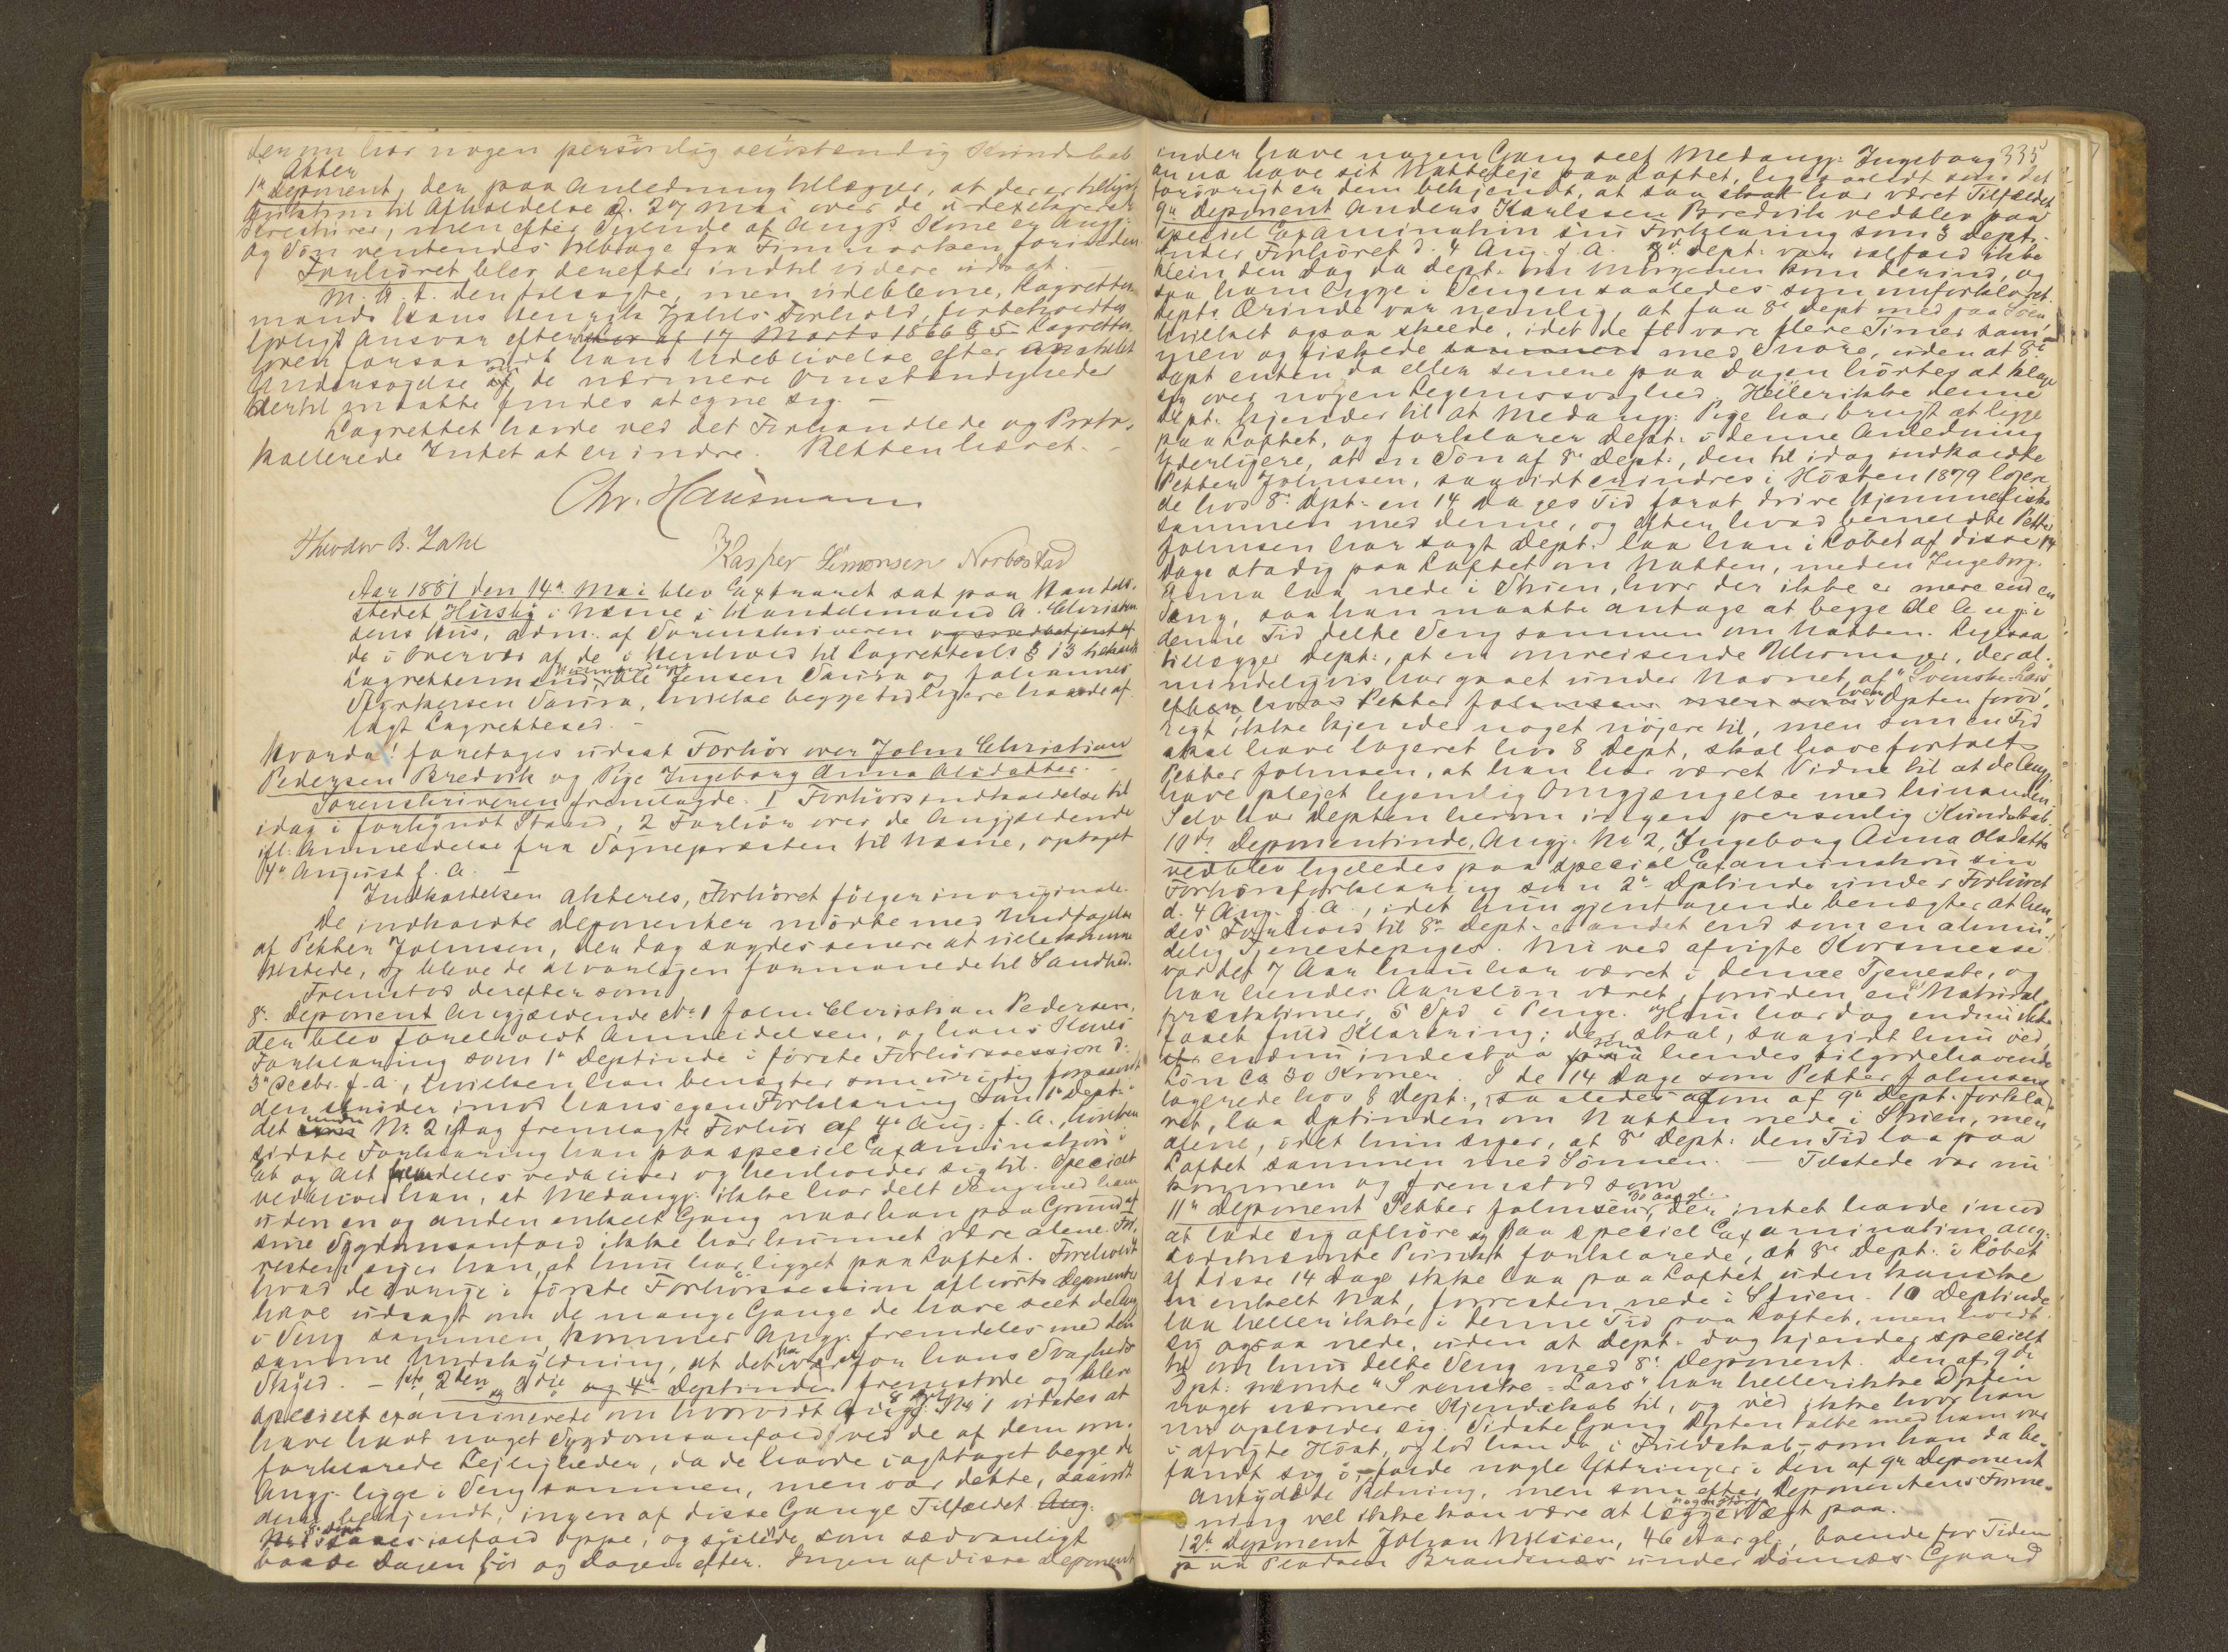 derom har nogen personlig selvstændig Kundskab
Atter
1ste Deponent, der paa Anledning tillægger, at der er tillyst
Auktion til Afholdelse d. 27 Mai over de u- dexekverede
Kreaturer, men efter Sigende af Angj's Kone er Angj.
og Søn ventendes tilbage fra Finmarken forinden.
Forhøret blev derefter indtil videre udsat.
M. H. t. den tilsagte, men udeblevne, Lagrettes-
mands Hans Henrik Zahls Forhold, forbeholdtes
lovligt Ansvar efter Lov af 17 Marts 1866 § 5 Lagrettes-
loven forsaavidt hans Udeblivelse efter anstillet
Undersøgelse af de nærmere Omstændigheder
dertil maatte findes at egne sig. —
Lagrettet havde ved det Forhandlede og Proto-
kollerede Intet at erindre. Retten hævet. —
Chr. Hausmann
Theodor B. Zahl
Kasper Simonsen Norbostad
Aar 1881 den 14de Mai blev Extraret sat paa Handels-
stedet Husby i Næsne i Handelsmand A. Christen-
sens Hus, adm. af Sorenskriveren og medbetjent af
de i Overvær af de i Henhold til Lagretteslov § 13 tilkaldte
Lagrettesmænd, Ole Jensen Saura og Johannes
Styrkersen Saura, hvilke begge tidligere havde af-
lagt Lagretteseed. —
Hvorda! foretoges udsat Forhør over John Christian
Pedersen Bredvik og Pige Ingeborg Anna Olsdatter. —
Sorenskriveren fremlagde. 1 Forhørsindkaldelse til
idag i forkyndt Stand, 2 Forhør over de Angjældende
ifl. Anmeldelse fra Sognepræsten til Næsne, optaget
4de August f. A.
Indkaldelsen akteres, Forhøret følger in originale.
De indkaldte Deponenter mødte med Undtagelse
af Petter Johnsen, der dog sagdes senere at ville komme
tilstede, og bleve de alvorligen formanede til Sandhed.
Fremstod derefter som
8de Deponent Angjældende No 1 John Christian Pedersen,
der blev foreholdt Anmeldelsen, og hans Kones
Forklaring som 1ste Deptinde i første Forhørssession d.
3de Decbr. f. A., hvilken han benægter som urigtig forsaavidt
den strider imod hans egen Forklaring som 1ste Dept. i
det under No 2 idag fremlagte Forhør af 4de Aug. f. A., hvilken
sidste Forklaring han paa speciel Examination i
Et og Alt fremdeles vedbliver og henholder sig til. Specielt
vedbliver han, at Medangj. ikke har delt Seng med ham
uden en og anden enkelt Gang naar han paa Grund af
sine Sygdomsanfald ikke har kunnet være alene. For-
resten siger han, at hun har ligget paa Loftet. Foreholdt
hvad de øvrige i første Forhørssession afhørte Deponenter
have udsagt om de mange Gange de have seet de Ang.
i Seng sammen, kommer Angj. fremdeles med den
samme Undskyldning, at det har været for hans Svagheds
Skyld. — 1ste, 2den og 3die og 4de Deptinder fremstode og blev
specielt examinerede om hvorvidt Angj. No 1 vidstes at
have havt noget Sygdomsanfald ved de af dem om-
forklarede Lejligheder, da de havde iagttaget begge de
Angj. ligge i Seng sammen, men var dette, saavidt
dem bekjendt, ingen af disse Gange Tilfældet Ang.
No 1 saaes ialfald oppe, og syslede som sædvanligt
baade Dagen før og Dagen efter. Ingen af disse Deponent
335
inder have nogen Gang seet Medangj. Ingeborg
Anna have sit Natteleje paa Loftet, ligesaalidt som det
forøvrigt er dem bekjendt, at saa skal har været Tilfældet.
9de Deponent Anders Karlssen Bredvik vedblev paa
speciel Examination sin Forklaring som 3 Dept.
under Forhøret d. 4 Aug. f. A. 8de Dept. var ialfald ikke
klein den Dag da Dept. om Morgenen kom derind, og
saa ham ligge i Sengen saaledes som omforklaret.
Depts Ærinde var nemlig, at faa 8de Dept. med paa Søen,
hvilket ogsaa skeede, idet de fl vare flere Timer sam-
men og fiskede sammen med Snøre, uden at 8de
Dept enten da eller senere paa Dagen hørtes at klage
sig over nogen Legemssvaghed. Hellerikke denne
Dept. kjender til at Medangj. Pige har brugt at ligge
paa Loftet, og forklarer Dept. i denne Anledning
yderligere, at en Søn af 8de Dept., den til idag indkaldte
Petter Johnsen, saavidt erindres i Høsten 1879 loger-
de hos 8de Dpt. en 14 Dages Tid forat drive Hjemmefiske
sammen med denne, og efter hvad bemeldte Petter
Johnsen har sagt Dept. laa han i Løbet af disse 14
Dage stadig paa Loftet om Natten, meden Ingeborg
Anna laa nede i Stuen, hvor der ikke er mere end en
Seng, saa han maatte antage at begge de Ang. i
denne Tid delte Seng sammen om Natten. Ligesaa
tillægger Dept., at en omreisende Uhrmager, der al-
mindeligvis har gaaet under Navnet af "Svenske-Lars"
efter hvad Petter Johnsen men som Dpten forøv-
rigt ikke kjender noget nøjere til, men som en Tid
skal have logeret hos 8 Dept, skal have fortalt
Petter Johnsen, at han har været Vidne til at de Ang.
have plejet legemlig Omgjængelse med hinanden.
Selv har Depten herom ingen personlig Kundskab.
10de Deponentinde, Angj. No 2, Ingeborg Anna Olsdatter
vedblev ligeledes paa speciel Examination sin
Forhørsforklaring som 2de Dptinde under Forhøret
d. 4 Aug. f. A., idet hun gjentagende benægter at hen-
des Forhold til 8de Dept. er andet end som en almin-
delig Tjenestepiges. Nu ved afvigte Korsmesse
var det 7 Aar hun har været i denne Tjeneste, og
har hendes Aarsløn været, foruden en Natural-
præstationer, 5 Spd i Penge. Hun har dog endnu ikke
faaet fuld Klarering; der skal, saavidt hun ved,
endnu indestaa som hendes tilgodehavende
Løn ca 30 Kroner. I de 14 Dage som Petter Johnsen
logerede hos 8 Dept., saaledes som af 9de Dept. forkla-
ret, laa Dptinden om Natten nede i Stuen, men
alene, idet hun siger, at 8de Dept. den Tid laa paa
Loftet sammen med Sønnen. — Tilstede var nu
kommen og fremstod som
11te Deponent Petter Johnsen, 30 Aar gl. der intet havde imod
at lade sig afhøre og paa speciel Examination ang.
sidstnævnte Punkt forklarede, at 8de Dept. i Løbet
af disse 14 Dage ikke laa paa Loftet uden kanske
en enkelt Nat, forresten nede i Stuen. 10 Deptinde
laa heller ikke i denne Tid paa Loftet, men holdt
sig ogsaa nede, uden at Dept. dog kjender specielt
til om hun delte Seng med 8de Deponent. Den af 9de
Dpt. nævnte "Svenske-Lars" har hellerikke Dpten
noget nærmere Kjendskab til, og ved ikke hvor han
nu opholder sig. Sidste Gang Dpten talte med ham var
i afvigte Høst, og lod han da i Fuldskab, som han da be-
fandt sig i, falde nogle Yttringer i den af 9de Deponent
antydede Retning, men som efter Deponentens For­me-
ning vel ikke kan være at lægge nogen større Vægt paa.
12te Deponent Johan Nilssen, 46 Aar gl., boende for Tiden
paa Pladsen Brandsnæs under Dønnæs Gaard